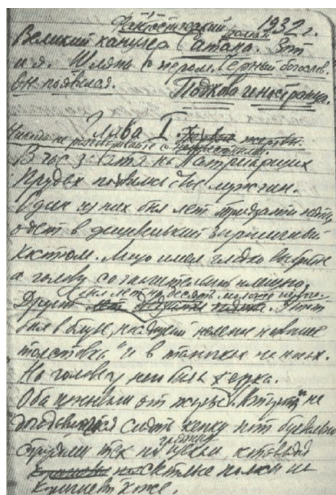 Фантастический роман 1932 г.
Великий канцлер. Сатана. Вот
и я. Шляпа с пером. Черный богослов.
Он появился. Подкова иностранца.
Глава I.
Никогда не разговаривайте с
В час заката на Патриарших
Прудах появились двое мужчин.
Один из них был лет тридцати пяти
одет в дешевенький заграничный
костюм. Лицо имел гладко выбритое
а голову со значительной плешью.
Другой был лет на десять моложе первого.
Этот
был в блузе, носящей нелепое название
"толстовка" и в тапочках на ногах.
На голове у него была кепка.
Оба изнывали от жары. У второго, не
догадавшегося снять кепку, пот буквально
струями тек по грязным щекам, оставляя
светлые полосы на
коричневой коже.